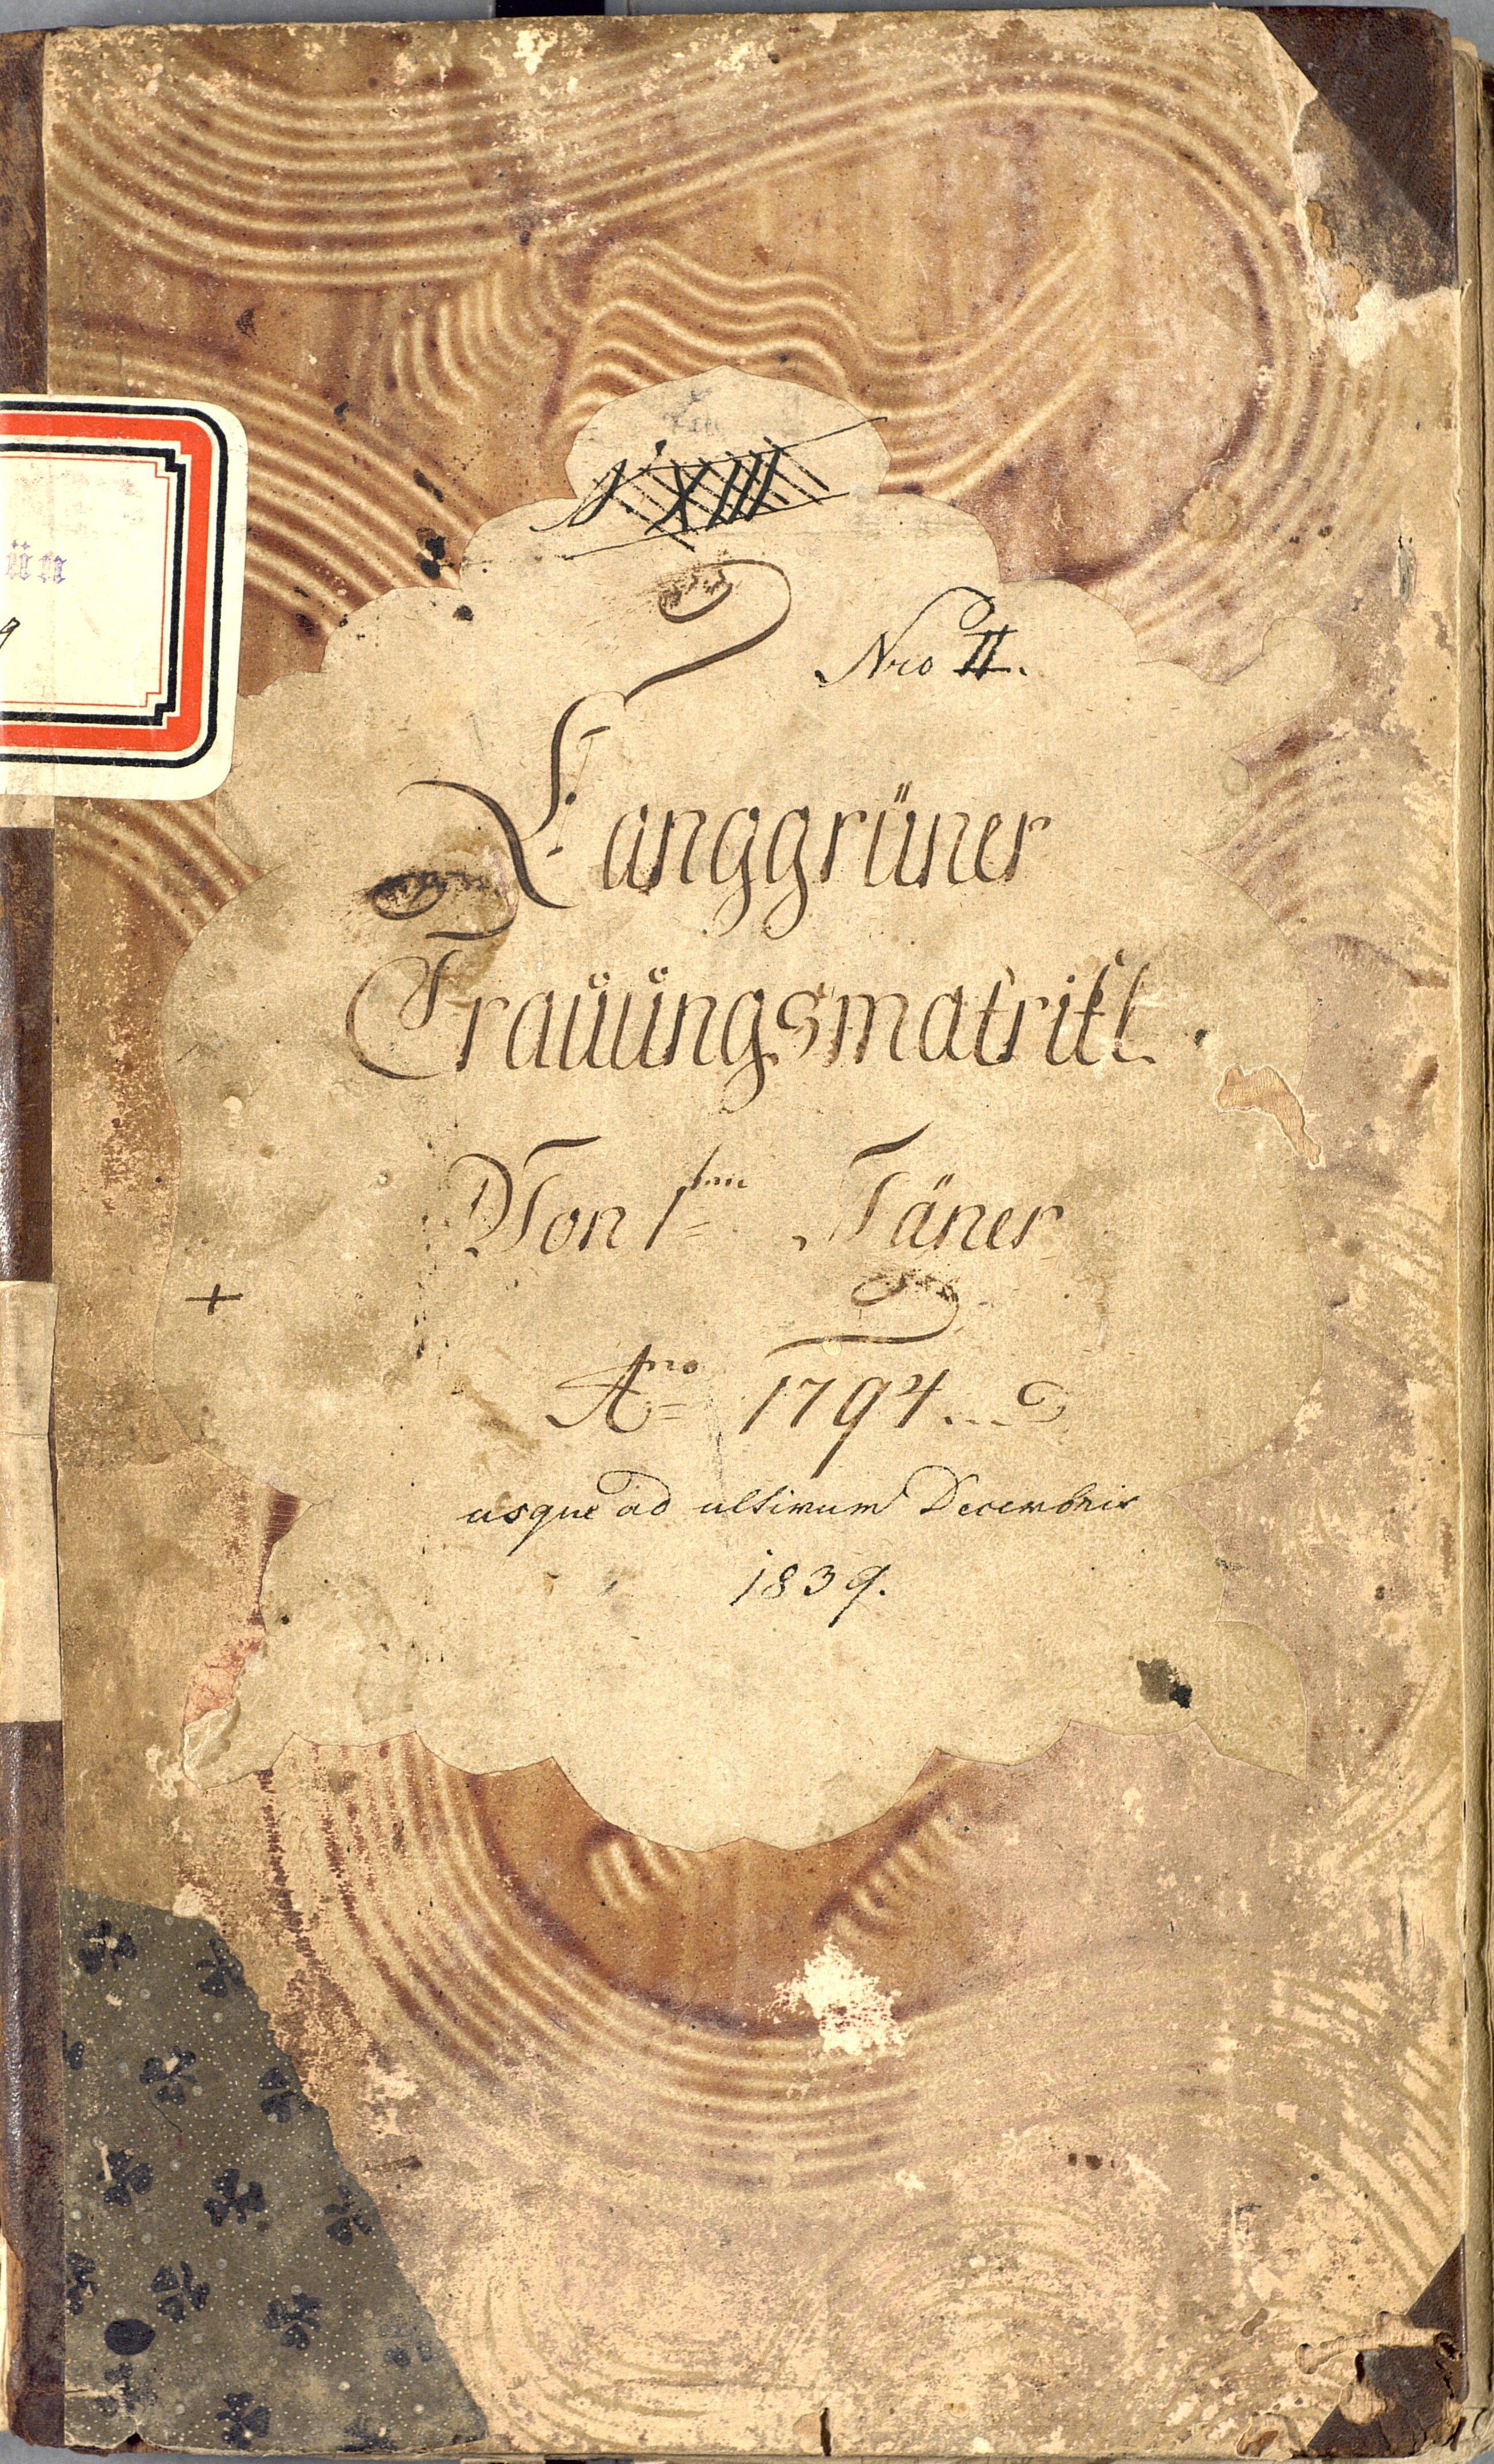 N XIII
Nro II.
Langgrüner
Traŭŭngsmatrikl.
Von 1ten Jäner
Ano 1794...
usque ad ultimum Decembris
1839.
ün
9